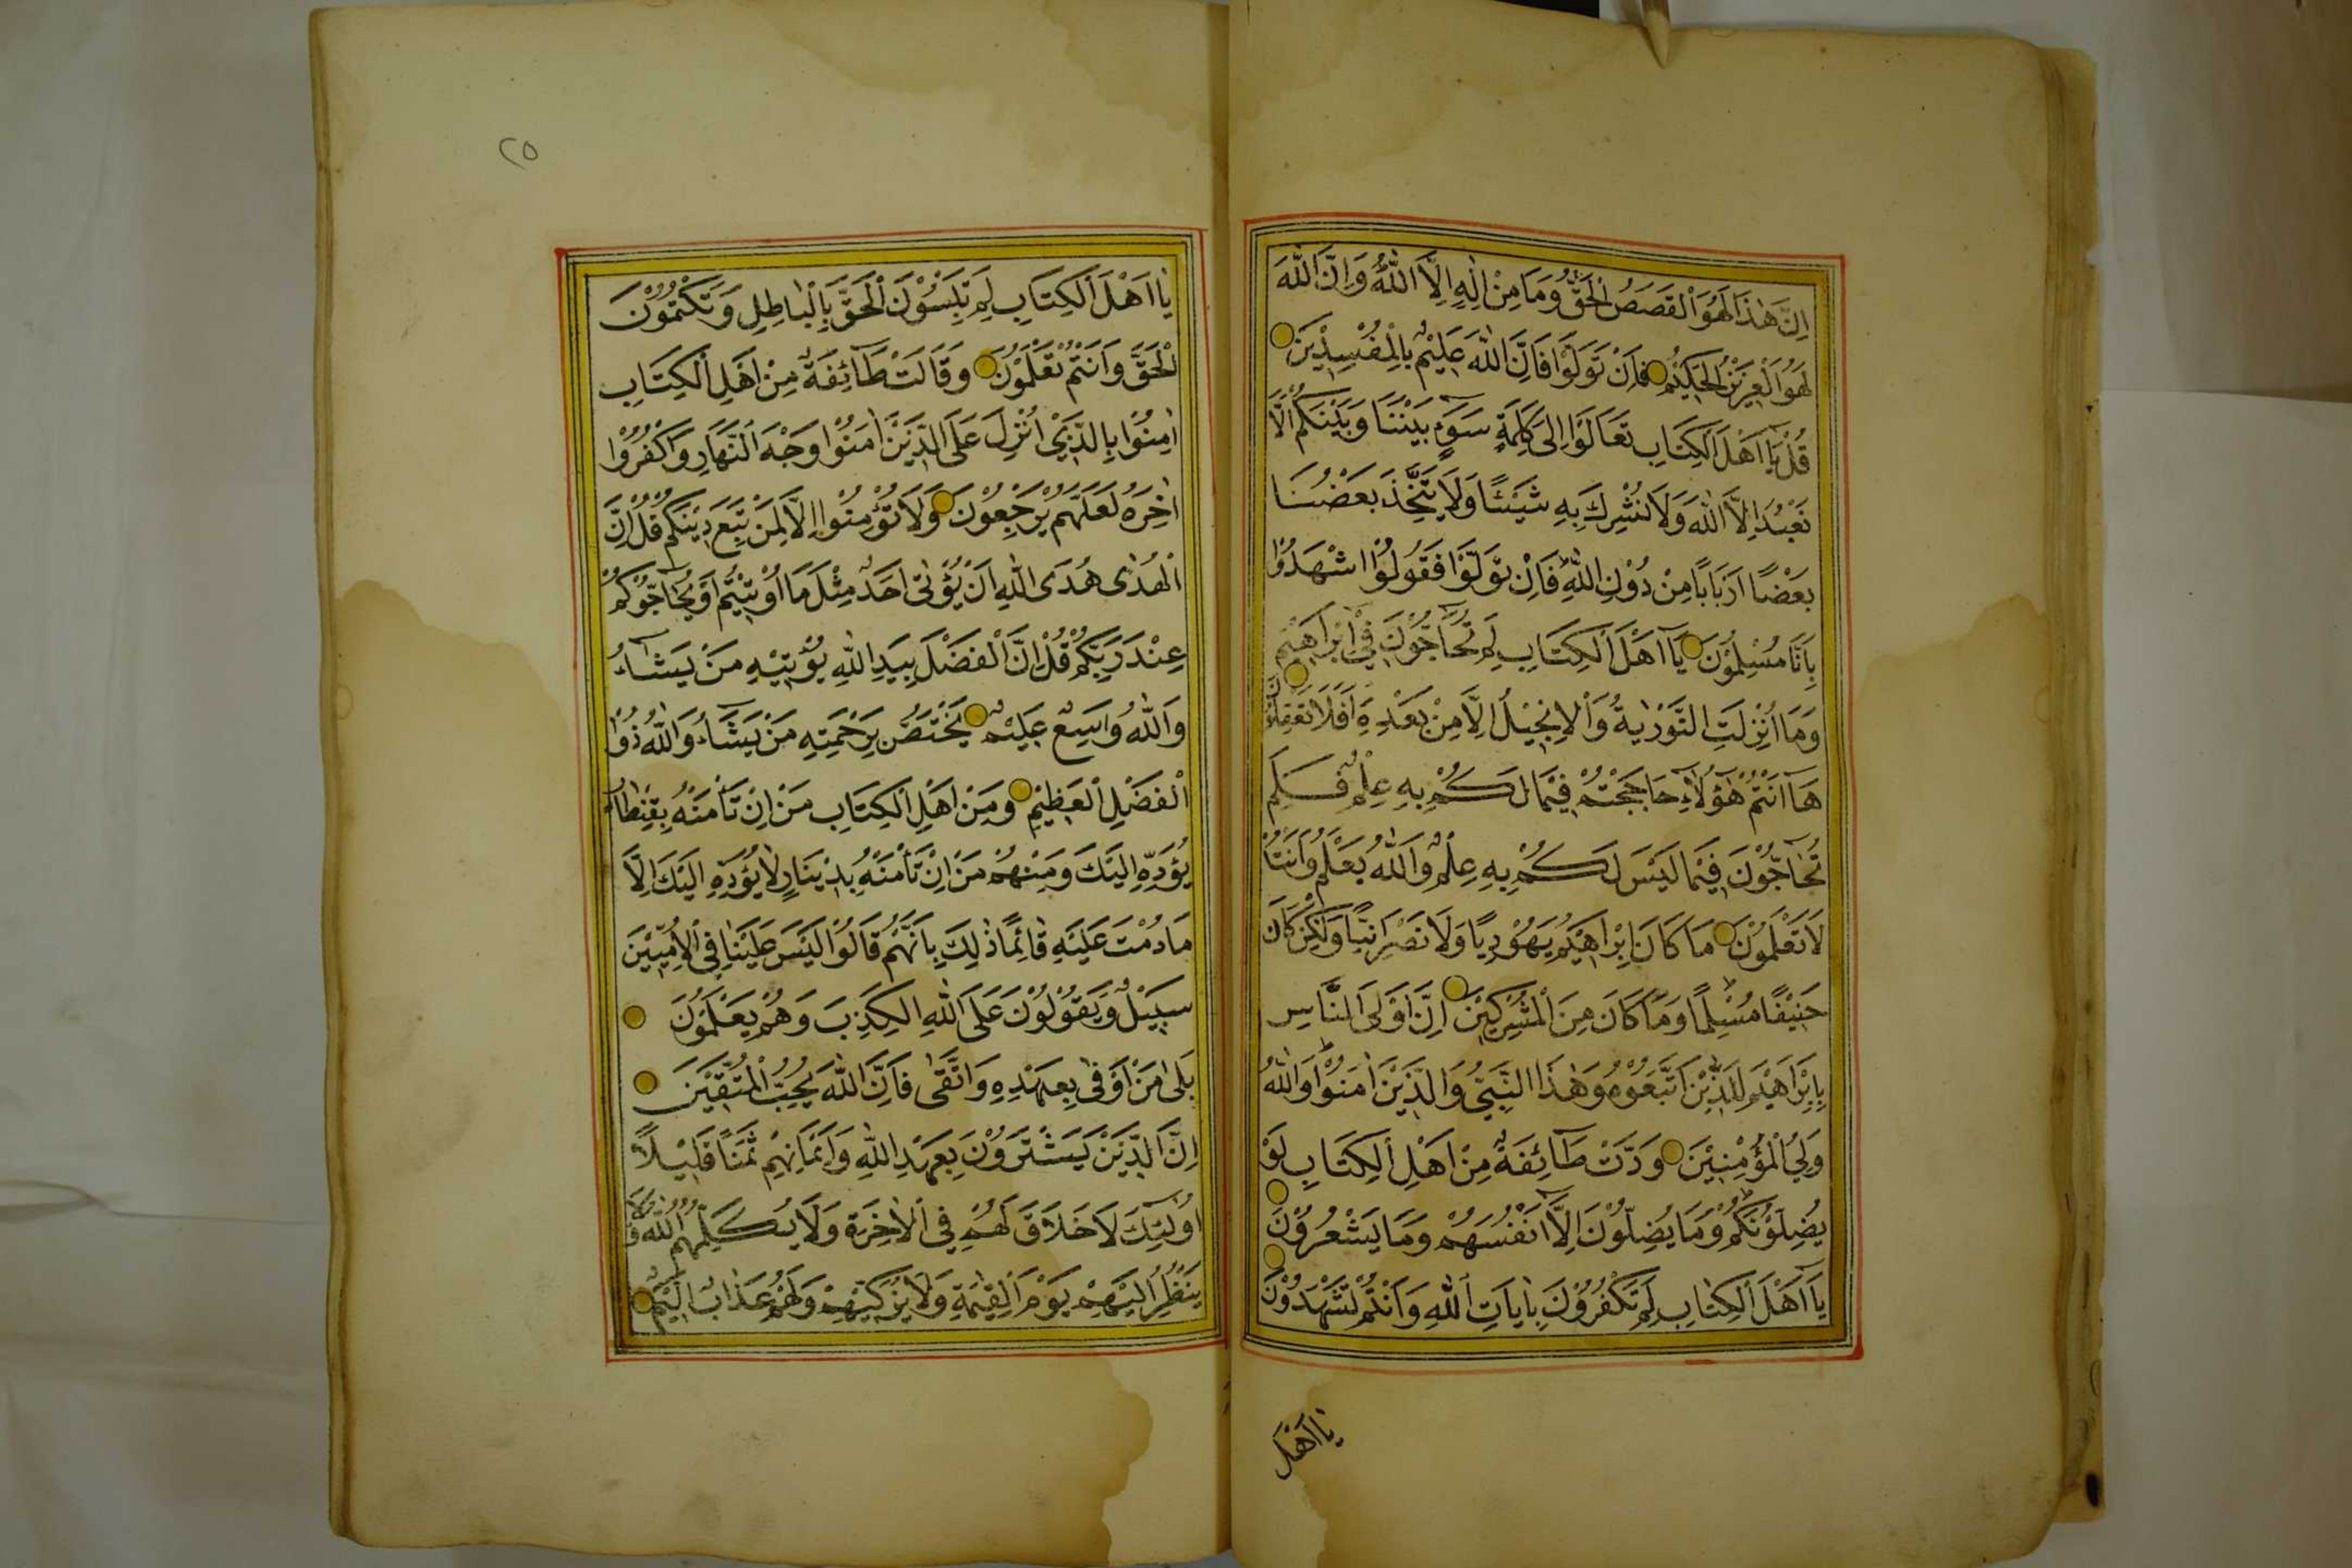 اِنَّ هٰذَا لَهُوَ الْقَصَصُ الْحَقُّ وَمَا مِنْ اِلٰهٍ اِلَّا اللّٰهُ وَاِنَّ اللّٰهَ
لَهُوَ الْعَزِيْزُ الْحَكِيْمُ فَاِنْ تَوَلَّوْا فَاِنَّ اللّٰهَ عَلِيْمٌ بِالْمُفْسِدِيْنَ
قُلْ يَا اَهْلَ الْكِتَابِ تَعَالَوْا اِلٰى كَلِمَةٍ سَوَآءٍ بَيْنَنَا وَبَيْنَكُمْ اَلَّا
نَعْبُدَ اِلَّا اللّٰهَ وَلَا نُشْرِكَ بِهِ شَيْئًا وَلَا يَتَّخِذَ بَعْضُنَا
بَعْضًا اَرْبَابًا مِنْ دُوْنِ اللّٰهِ فَاِنْ تَوَلَّوْا فَقُوْلُوْا اشْهَدُوْا
بِاَنَّا مُسْلِمُوْنَ يَآ اَهْلَ الْكِتَابِ لِمَ تُحَآجُّوْنَ فِيْ اِبْرَاهِيْمَ
وَمَا اُنْزِلَتِ التَّوْرٰيةُ وَالْاِنْجِيْلُ اِلَّا مِنْ بَعْدِهِ اَفَلَا تَعْقِلُوْنَ
هَآ اَنْتُمْ هٰٓؤُلَآءِ حَاجَجْتُمْ فِيْمَا لَكُمْ بِهِ عِلْمٌ فَلِمَ
تُحَآجُّوْنَ فِيْمَا لَيْسَ لَكُمْ بِهِ عِلْمٌ وَاللّٰهُ يَعْلَمُ وَاَنْتُمْ
لَا تَعْلَمُوْنَ مَا كَانَ اِبْرَاهِيْمُ يَهُوْدِيًّا وَلَا نَصْرَانِيًّا وَلٰكِنْ كَانَ
حَنِيْفًا مُسْلِمًا وَمَا كَانَ مِنَ الْمُشْرِكِيْنَ اِنَّ اَوْلَى النَّاسِ
بِاِبْرَاهِيْمَ لَلَّذِيْنَ اتَّبَعُوْهُ وَهٰذَا النَّبِيُّ وَالَّذِيْنَ اٰمَنُوْا وَاللّٰهُ
وَلِيُّ الْمُؤْمِنِيْنَ وَدَّتْ طَآئِفَةٌ مِنْ اَهْلِ الْكِتَابِ لَوْ
يُضِلُّوْنَكُمْ وَمَا يُضِلُّوْنَ اِلَّا اَنْفُسَهُمْ وَمَا يَشْعُرُوْنَ
يَآ اَهْلَ الْكِتٰابِ لِمَ تَكْفُرُوْنَ بِاٰيَاتِ اللّٰهِ وَاَنْتُمْ تَشْهَدُوْنَ
يَا اَهْلَ
٢٥
يَا اَهْلَ الْكِتَابِ لِمَ تَلْبِسُوْنَ الْحَقَّ بِالْبَاطِلِ وَتَكْتُمُوْنَ
الْحَقَّ وَاَنْتُمْ تَعْلَمُوْنَ وَقَالَتْ طَآئِفَةٌ مِنْ اَهْلِ الْكِتَابِ
اٰمِنُوْا بِالَّذِيْ اُنْزِلَ عَلَى الَّذِيْنَ اٰمَنُوْا وَجْهَ النَّهَارِ وَاكْفُرُوْا
اٰخِرَهُ لَعَلَّهُمْ يَرْجِعُوْنَ وَلَا تُؤْمِنُوْا اِلَّا لِمَنْ تَبِعَ دِيْنَكُمْ قُلْ اِنَّ
الْهُدٰى هُدَى اللّٰهِ اَنْ يُؤْتٰى اَحَدٌ مِثْلَ مَا اُوْتِيْتُمْ اَوْ يُحَآجُّوْكُمْ
عِنْدَ رَبِّكُمْ قُلْ اِنَّ الْفَضْلَ بِيَدِ اللّٰهِ يُؤْتِيْهِ مَنْ يَشَآءُ
وَاللّٰهُ وَاسِعٌ عَلِيْمٌ يَخْتَصُّ بِرَحْمَتِهِ مَنْ يَشَآءُ وَاللّٰهُ ذُوْا
الْفَضْلِ الْعَظِيْمِ وَمِنْ اَهْلِ الْكِتَابِ مَنْ اِنْ تَأْمَنْهُ بِقِنْطَارٍ
يُؤَدِّهِ اِلَيْكَ وَمِنْهُمْ مَنْ اِنْ تَأْمَنْهُ بِدِيْنَارٍ لَا يُؤَدِّهِ اِلَيْكَ اِلَّا
مَا دُمْتَ عَلَيْهِ قَائِمًا ذٰلِكَ بِاَنَّهُمْ قَالُوْا لَيْسَ عَلَيْنَا فِي الْاُمِّيِّيْنَ
سَبِيْلٌ وَيَقُوْلُوْنَ عَلَى اللّٰهِ الْكَذِبَ وَهُمْ يَعْلَمُوْنَ
بَلٰى مَنْ اَوْفٰى بِعَهْدِهِ وَاتَّقٰى فَاِنَّ اللّٰهَ يُحِبُّ الْمُتَّقِيْنَ
اِنَّ الَّذِيْنَ يَشْتَرُوْنَ بِعَهْدِ اللّٰهِ وَاَيْمَانِهِمْ ثَمَنًا قَلِيْلًا
اُولٰٓئِكَ لَا خَلَاقَ لَهُمْ فِي الْاٰخِرَةِ وَلَا يُكَلِّمُهُمُ اللّٰهُ وَلَا
يَنْظُرُ اِلَيْهِمْ يَوْمَ الْقِيٰمَةِ وَلَا يُزَكِّيْهِمْ وَلَهُمْ عَذَابٌ اَلِيْمٌ